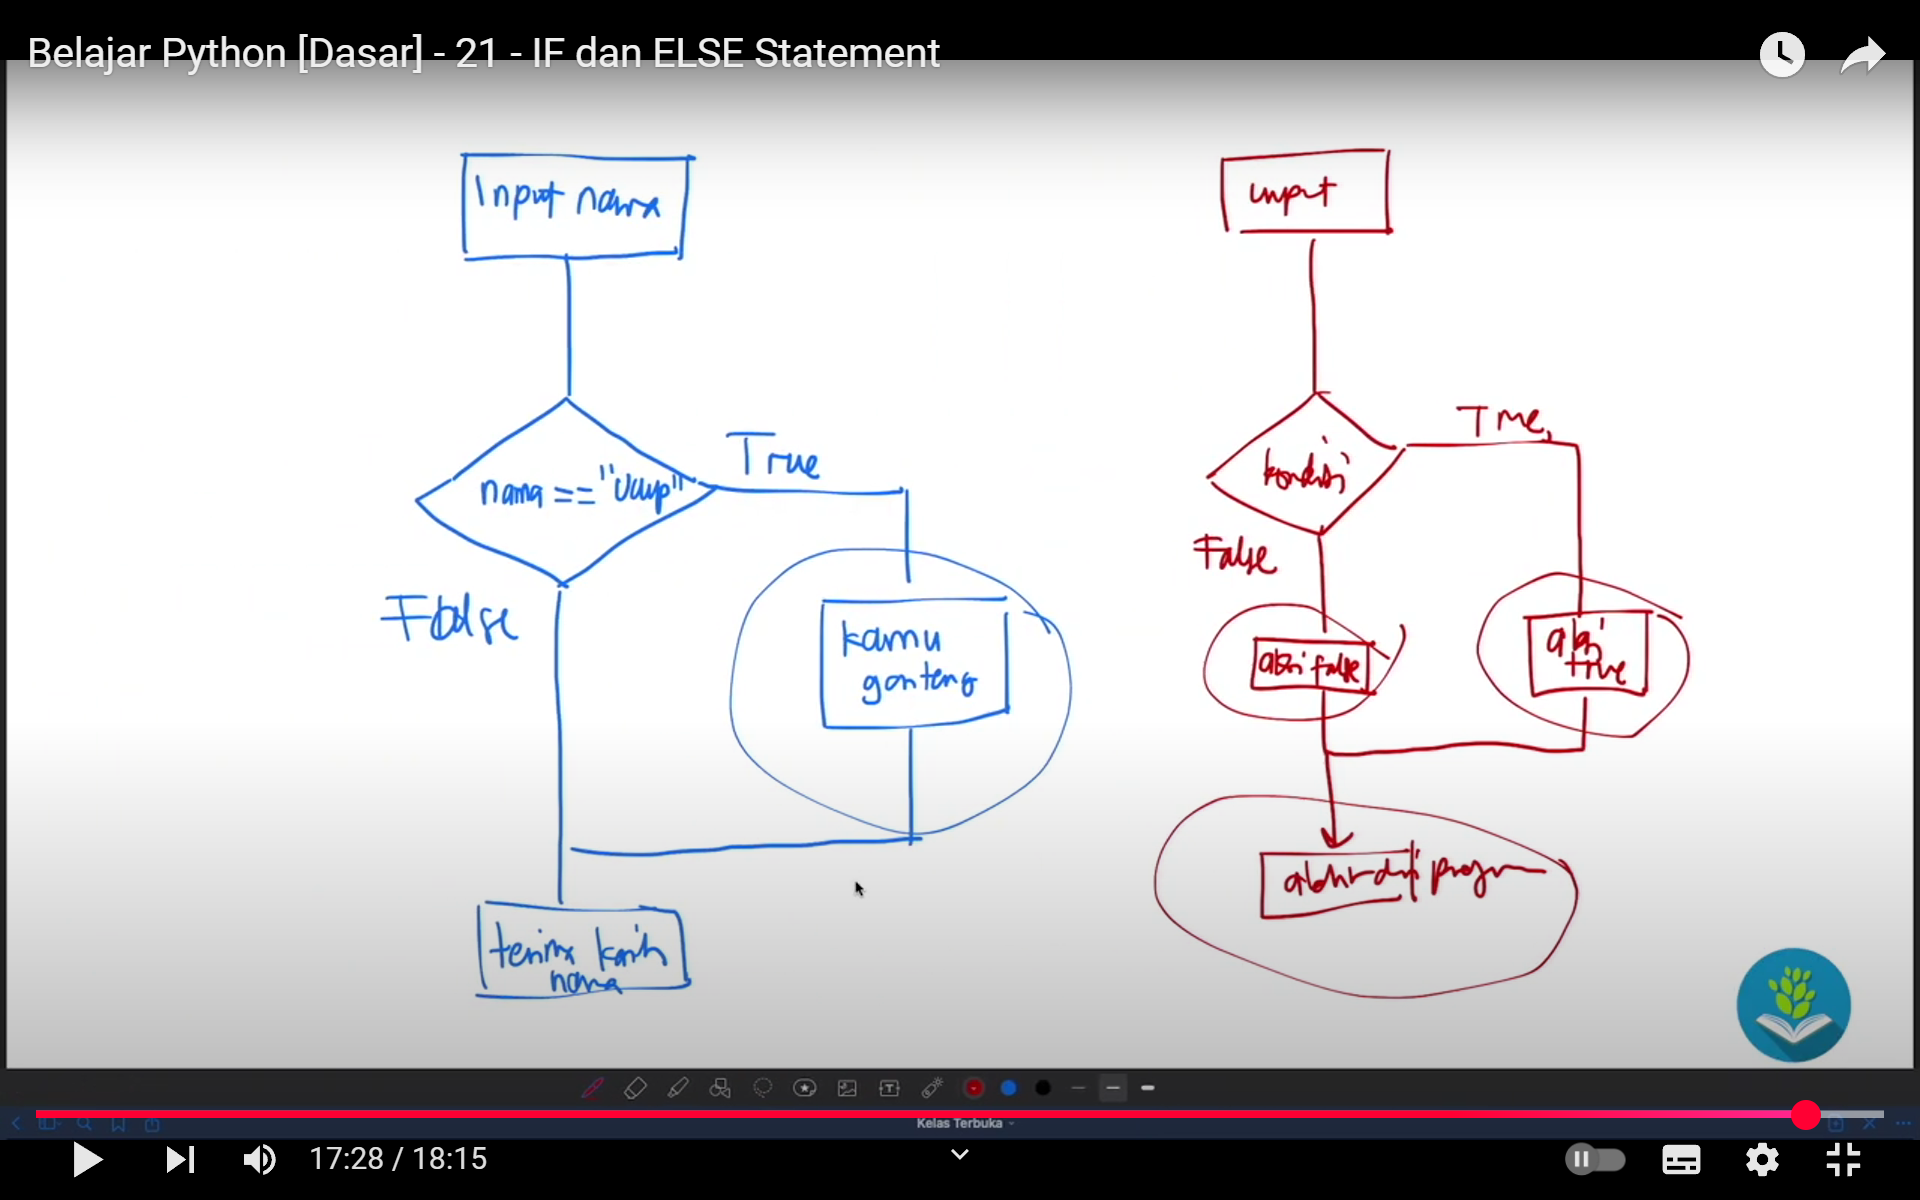 Belajar Python [Dasar] - 21 - IF dan ELSE Statement
Input nama
nama == "Ucup"
True
False
kamu
ganteng
terima kasih
nama
input
kondisi
True
False
aksi false
aksi
true
akhir dari program
Kelas Terbuka
17:28 / 18:15